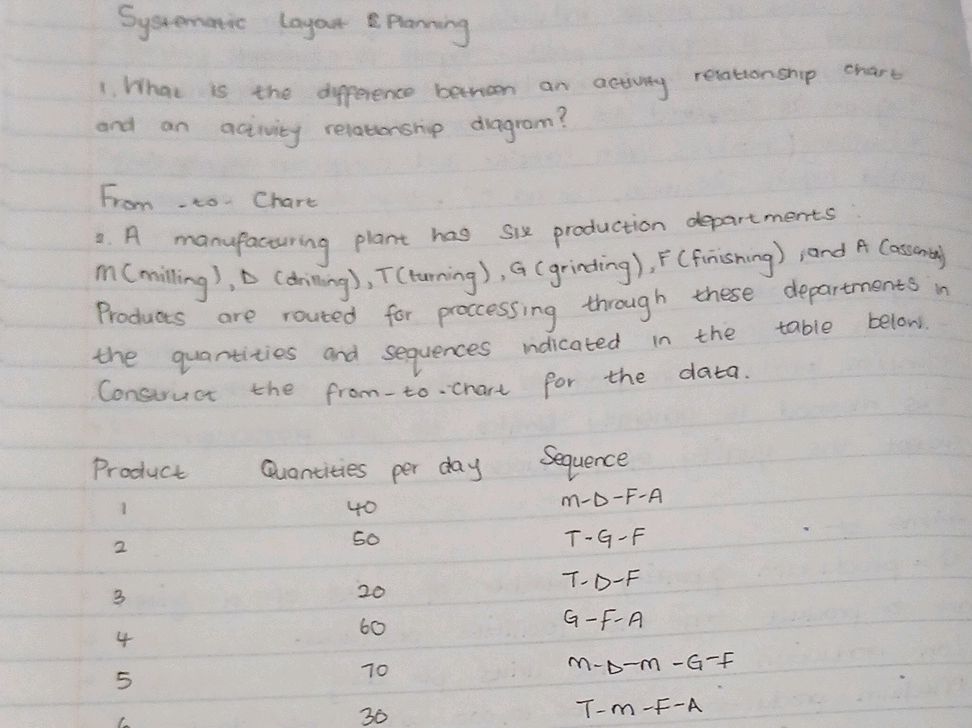 Systematic Layout & Planning
1. What is the difference between an activity relationship chart
and an activity relationship diagram?
From -to- Chart
2. A manufacturing plant has six production departments
M(milling), D (drilling), T(turning), G (grinding), F (finishing), and A (assembly)
Products are routed for proccessing through these departments in
the quantities and sequences indicated in the table below.
Construct the from-to-chart for the data.
Product Quantities per day Sequence
1 40 M-D-F-A
2 50 T-G-F
3 20 T-D-F
4 60 G-F-A
5 70 M-D-M-G-F
6 30 T-M-F-A